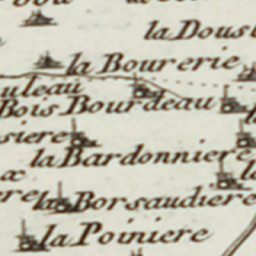 la Dous
la Bourerie
uleau
Bois Bourdeau
siere
la Bardonniere
la
ere la Borsaudiere
la Poiniere